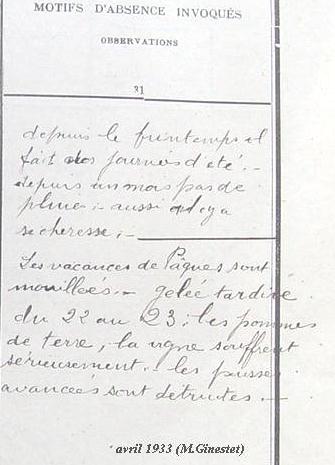 MOTIFS D'ABSENCE INVOQUÉS
OBSERVATIONS
31
depuis le printemps il
fait des journées d'été. –
depuis un mois pas de
pluie ; – aussi il y a
sécheresse ; –
Les vacances de Pâques sont
mouillées. – gelée tardive
du 22 au 23 ; les pommes
de terre, la vigne souffrent
sérieusement. – les pousses
avancées sont détruites. –
avril 1933 (M.Ginestet)